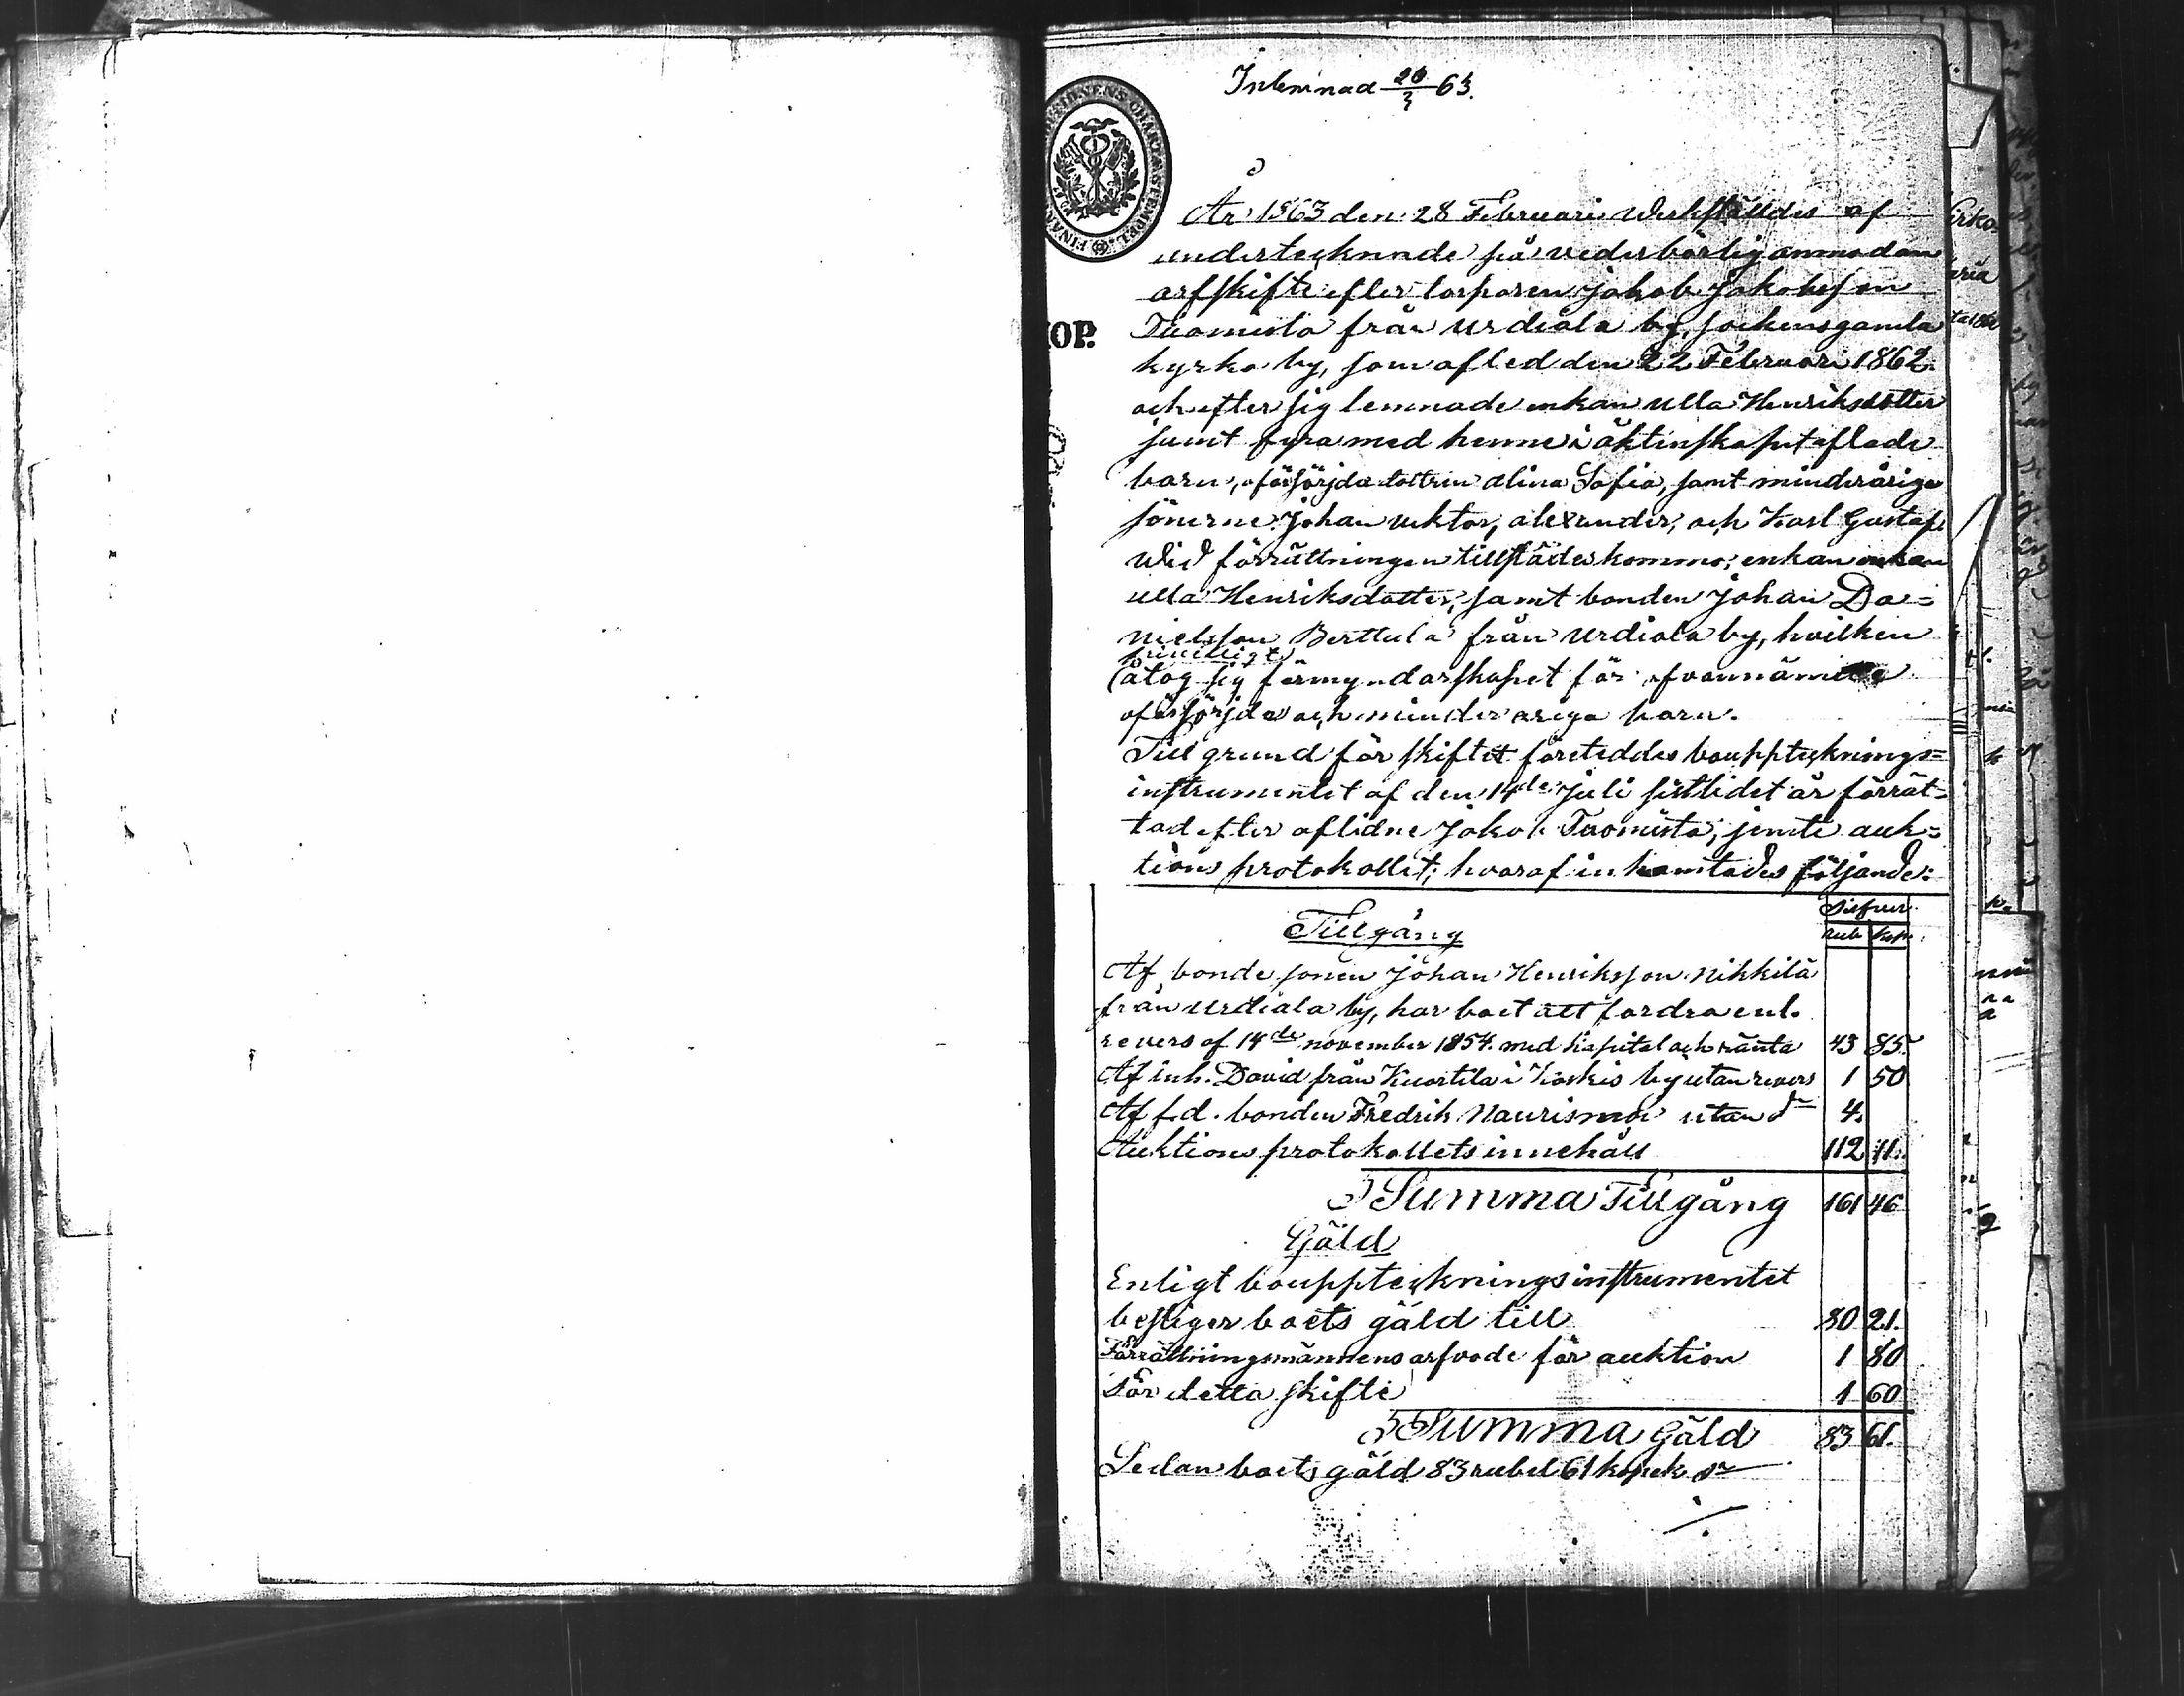 Inlemnad 20/3 63.
År 1863 den 28 Februari werkställdes af
undertecknade på vederbörlig anmodan
arfskifte efter torparen Jakob Jakobsson
KOP. Tuomisto från Urdiala by, sockens gamla
kyrko by, som afled den 22 Februari 1862
och efter sig lemnade enkan Ulla Henriksdotter
samt fyra med henne i äktenskapet aflade
barn, oförsörjda dottren Alina Sofia, samt minderåriga
sönerne Johan Viktor, Alexander, och Karl Gustaf.
Wid förrättningen tillstädeskommo; enkan enkan
Ulla Henriksdotter, samt bonden Johan Da=
nielsson Berttula från Urdiala by, hvilken
frivilligt
åtog sig förmyndarskapet för ofvannämnde
oförsörjda och minderåriga barn.
Till grund för skiftet företeddes bouppteknings=
instrumentet af den 14de Juli sistlidet år förrät=
tad efter aflidne Jakob Tuomisto, jemte auk=
tions protokollet; hvaraf inhemtades följande:
Silfver
Tillgång Rub Kop.
Af bonde sonen Johan Henriksson Nikkilä
från Urdiala by, har boet att fordra enl.
revers af 14de november 1854. med kapital och ränta 43 85.
Af inh. David från Kuortila i Koskis by utan revers 1 50
Af f.d. bonden Fredrik Naurismaa utan do 4.
Auktions protokollets innehåll 112 11.
Summa Tillgång 161 46
Gäld
Enligt bouppteknings instrumentet
bestiger boets gäld till 80 21.
Förrättningsmännens arfvode för auktion 1 80
För detta skifte 1 60
Summa Gäld 83 61.
Sedan boets gäld 83 rubel 61 kopek Sr